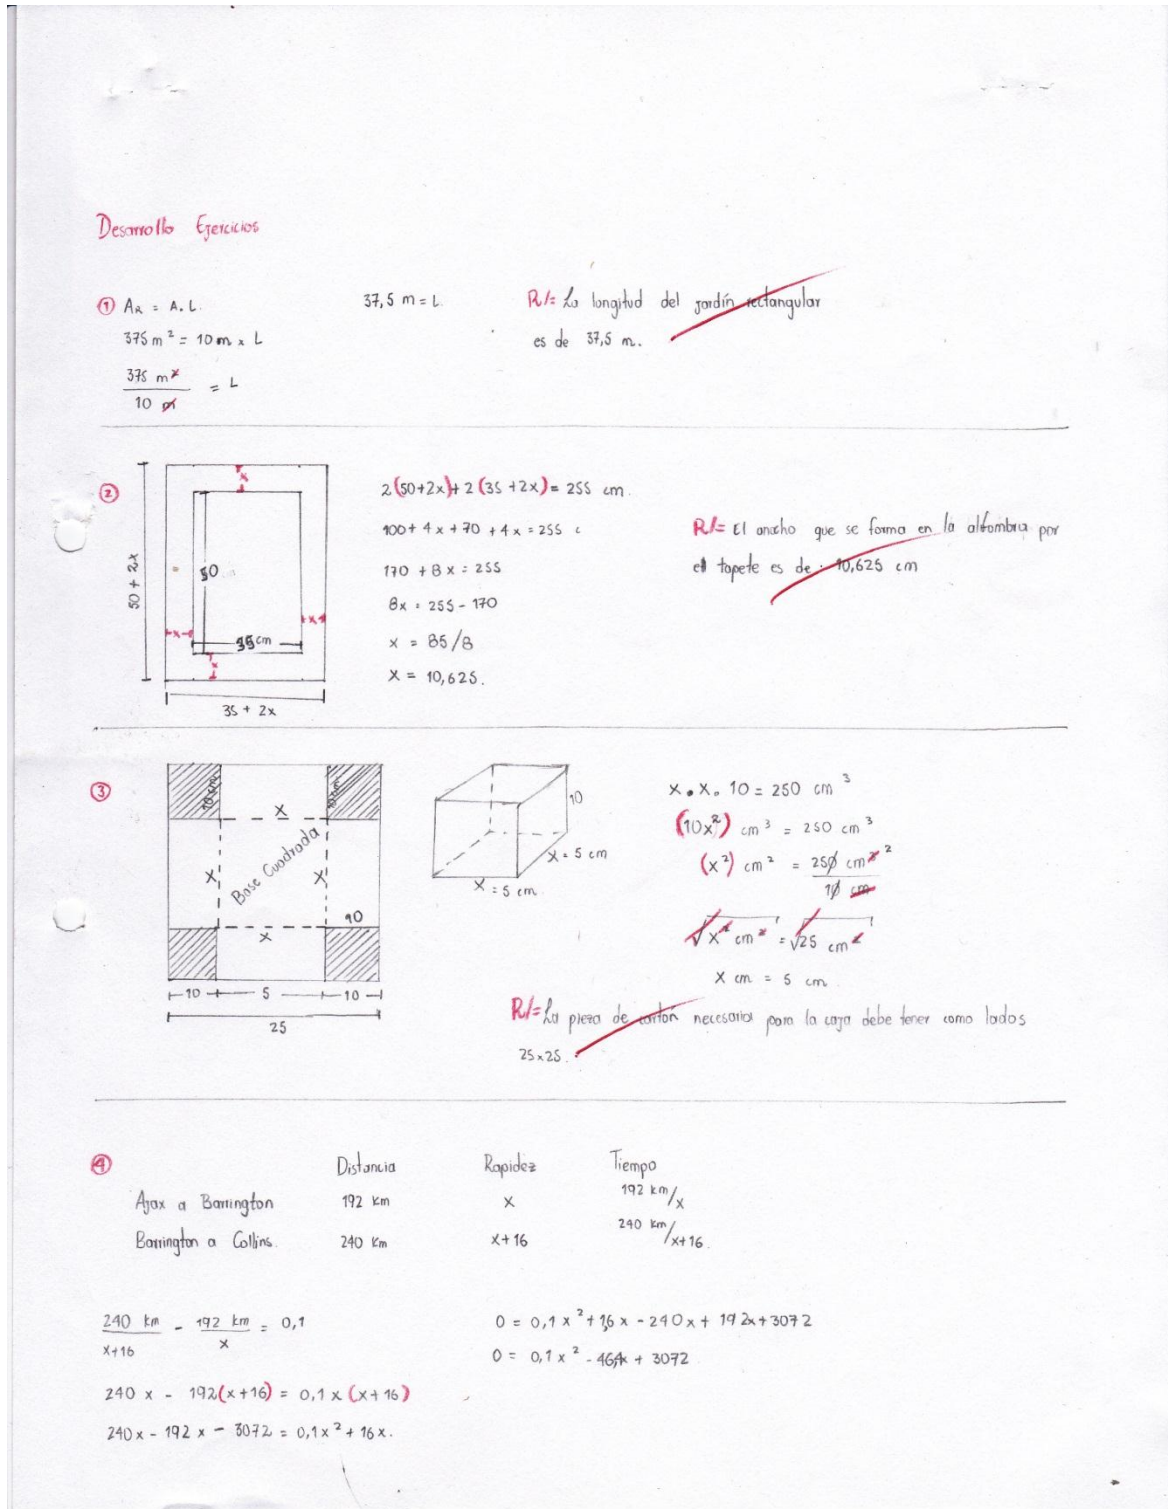 Desarrollo Ejercicios
① AR = A. L.
375 m² = 10 m x L
375 m² / 10 m = L
37,5 m = L
R/= La longitud del jardín rectangular
es de 37,5 m.
②
x
50
50 + 2x
x
x
35 cm
x
35 + 2x
2(50+2x)+ 2 (35 +2x) = 255 cm.
100 + 4x + 70 + 4x = 255 c
170 + 8x = 255
8x = 255 - 170
x = 85/8
x = 10,625.
R/= El ancho que se forma en la alfombra por
el tapete es de : 10,625 cm
③
10 cm
10 cm
x
x
Base Cuadrada
x
10
x
10
5
10
25
10
x = 5 cm
x = 5 cm.
x . x . 10 = 250 cm³
(10x²) cm³ = 250 cm³
(x²) cm² = 250 cm³ ² / 10 cm
√x² cm² = √25 cm²
x cm = 5 cm.
R/= La pieza de cartón necesaria para la caja debe tener como lados
25x25.
④
Distancia Rapidez Tiempo
Ajax a Barrington 192 km x 192 km/x
Barrington a Collins. 240 Km x+16 240 km/x+16.
240 km / x+16 - 192 km / x = 0,1
240 x - 192(x+16) = 0,1 x (x+16)
240x - 192 x - 3072 = 0,1x² + 16x.
0 = 0,1 x² + 1,6 x - 240x + 192x + 3072
0 = 0,1 x² - 46,4x + 3072